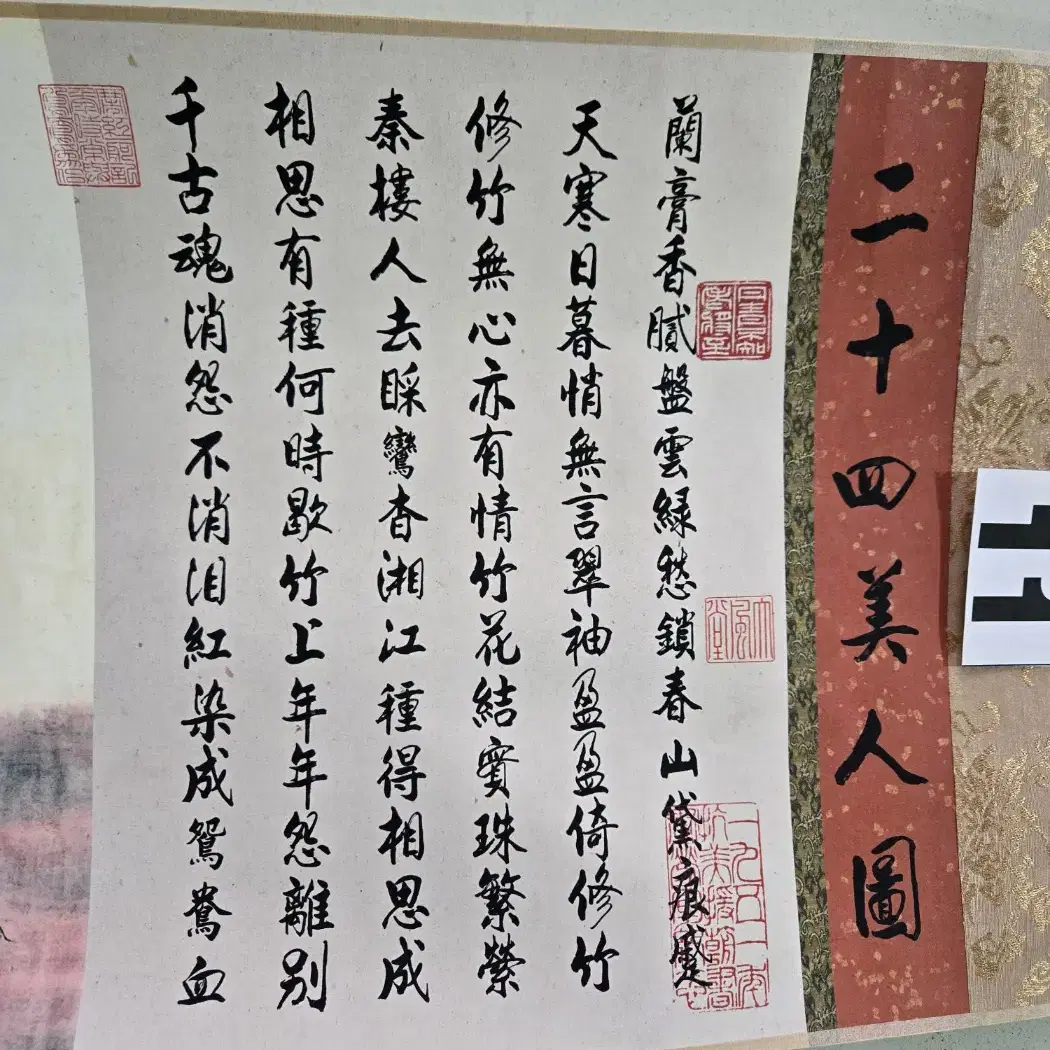 二十四美人圖
大風堂
蘭膏香膩盤雲綠愁鎖春山黛痕蹙
天寒日暮悄無言翠袖盈盈倚修竹
修竹無心亦有情竹花結實珠繁縈
秦樓人去睬鸞杳湘江種得相思成
相思有種何時歇竹上年年怨離別
千古魂消怨不消泪紅染成鴛鴦血